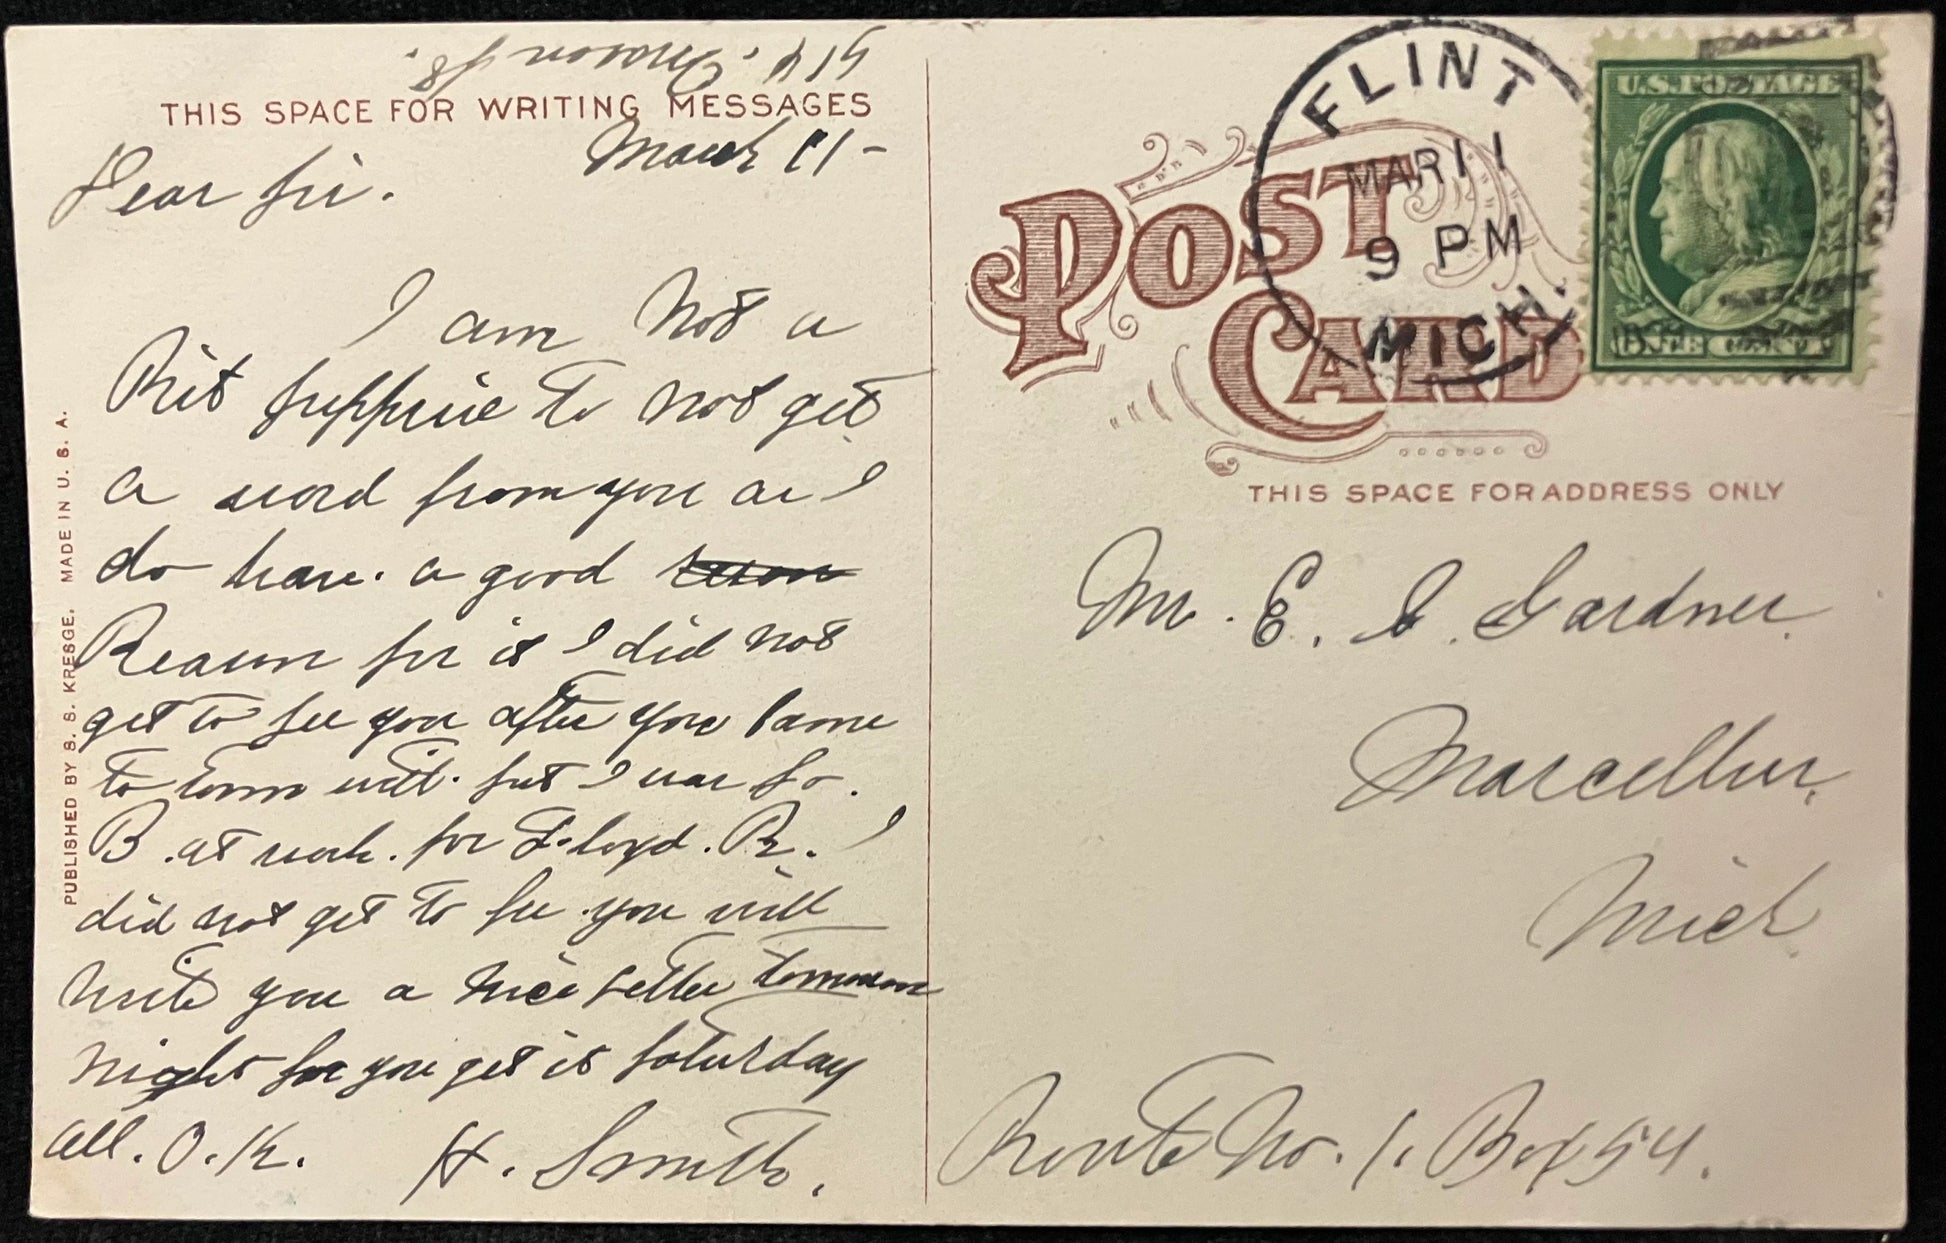 914. Mason St.
THIS SPACE FOR WRITING MESSAGES
March 11 -
Dear Sir.
I am Not a
Bit supprise to not get
a word from you as I
do have. a good
Reason for is I did not
get to see you after you came
to town will. but I was So.
B. at work. for Floyd. R. I
did not get to see you will
write you a Nice Letter tomorrow
Night so you get it Saturday
all. O.K. H. Smith.
PUBLISHED BY S. S. KRESGE. MADE IN U. S. A.
POST
CARD
THIS SPACE FOR ADDRESS ONLY
FLINT
MAR 11
9 PM
MICH.
U.S. POSTAGE
Mr. E. S. Gardner.
Marcellus,
Mich
Route No. 1. Box 54.